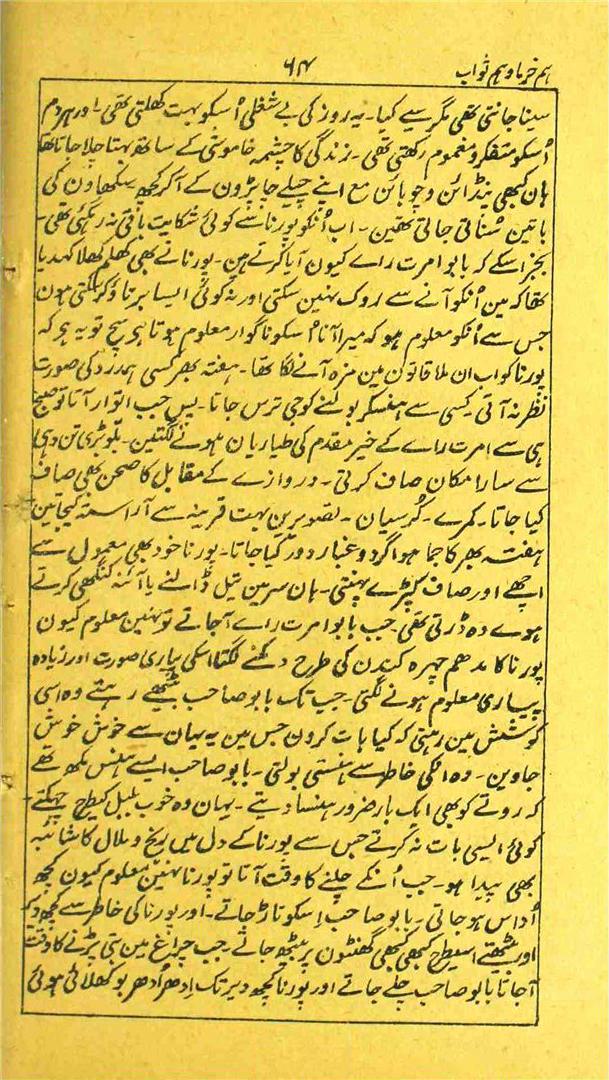 ہم خرما و ہم ثواب ۶۴
سینا جانتی تھی مگر سیے کیا۔ یہ روز کی بے شغلی اُسکو بہت کھلتی تھی۔ اور ہر دم
اُسکو متفکر و مغموم رکھتی تھی۔ زندگی کا چشمہ خاموشی کے ساتھ بہتا چلا جاتا تھا
ہان کبھی پنڈائن و چوبائن مع اپنے چیلے چاپڑون کے آکر کچھ سکھاون کی
باتین سُناتی جاتی تھین۔ اب اُنکو پورنا سے کوئی شکایت باقی نہ رہگئی تھی۔
بجز اسکے کہ بابو امرت راے کیون آیا کرتے ہین۔ پورنا نے بھی کھلم کھلا کہدیا
تھا کہ مین اُنکو آنے سے روک نہین سکتی اور نہ کوئی ایسا برتاؤ کرسکتی ہون
جس سے اُنکو معلوم ہو کہ میرا آنا اُسکو ناگوار معلوم ہوتا ہی سچ تو یہ ہی کہ
پورنا کو اب ان ملاقاتون مین مزہ آنے لگا تھا۔ ہفتہ بھر کسی ہمدرد کی صورت
نظر نہ آتی کسی سے ہنسکر بولنے کو جی ترس جاتا۔ پس جب اتوار آتا تو صبح
ہی سے امرت راے کے خیر مقدم کی طیاریان ہونے لگتین۔ بلو بڑی تن دہی
سے سارا مکان صاف کرتی۔ دروازے کے مقابل کا صحن بھی صاف
کیا جاتا۔ کمرے۔ کُرسیان۔ تصویرین بہت قرینہ سے آراستہ کیجاتین
ہفتہ بھر کا جما ہوا گرد و غبار دور کیا جاتا۔ پورنا خود بھی معمول سے
اچھے اور صاف کپڑے پہنتی۔ ہان سر مین تیل ڈالنے یا آئنہ کنگھی کرتے
ہوے وہ ڈرتی تھی۔ جب بابو امرت راے آجاتے تو نہین معلوم کیون
پورنا کا مدھم چہرہ کندن کی طرح دمکنے لگتا اسکی پیاری صورت اور زیادہ
پیاری معلوم ہونے لگتی۔ جب تک بابو صاحب بیٹھے رہتے وہ اسی
کوشش مین رہتی کہ کیا بات کرون جس مین یہ یہان سے خوش خوش
جاوین۔ وہ اُنکی خاطر سے ہنستی بولتی۔ بابو صاحب ایسے ہنس مکھ تھے
کہ روتے کو بھی ایک بار ضرور ہنسا دیتے۔ یہان وہ خوب بلبل کیطرح چہکتے
کوئی ایسی بات نہ کرتے جس سے پورنا کے دل میں رنج و ملال کا شائبہ
بھی پیدا ہو۔ جب اُنکے چلنے کا وقت آتا تو پورنا نہین معلوم کیون کچھ
اُداس ہو جاتی۔ بابو صاحب اِسکو تاڑ جاتے۔ اور پورنا کی خاطر سے کچھ دیر
اور بیٹھتے اسیطرح کبھی کبھی گھنٹون پر بیٹھ جاتے۔ جب چراغ مین بتی پڑنے کا وقت
آجاتا بابو صاحب چلے جاتے اور پورنا کچھ دیر تک اِدھر اُدھر بوکھلائی ہوئی